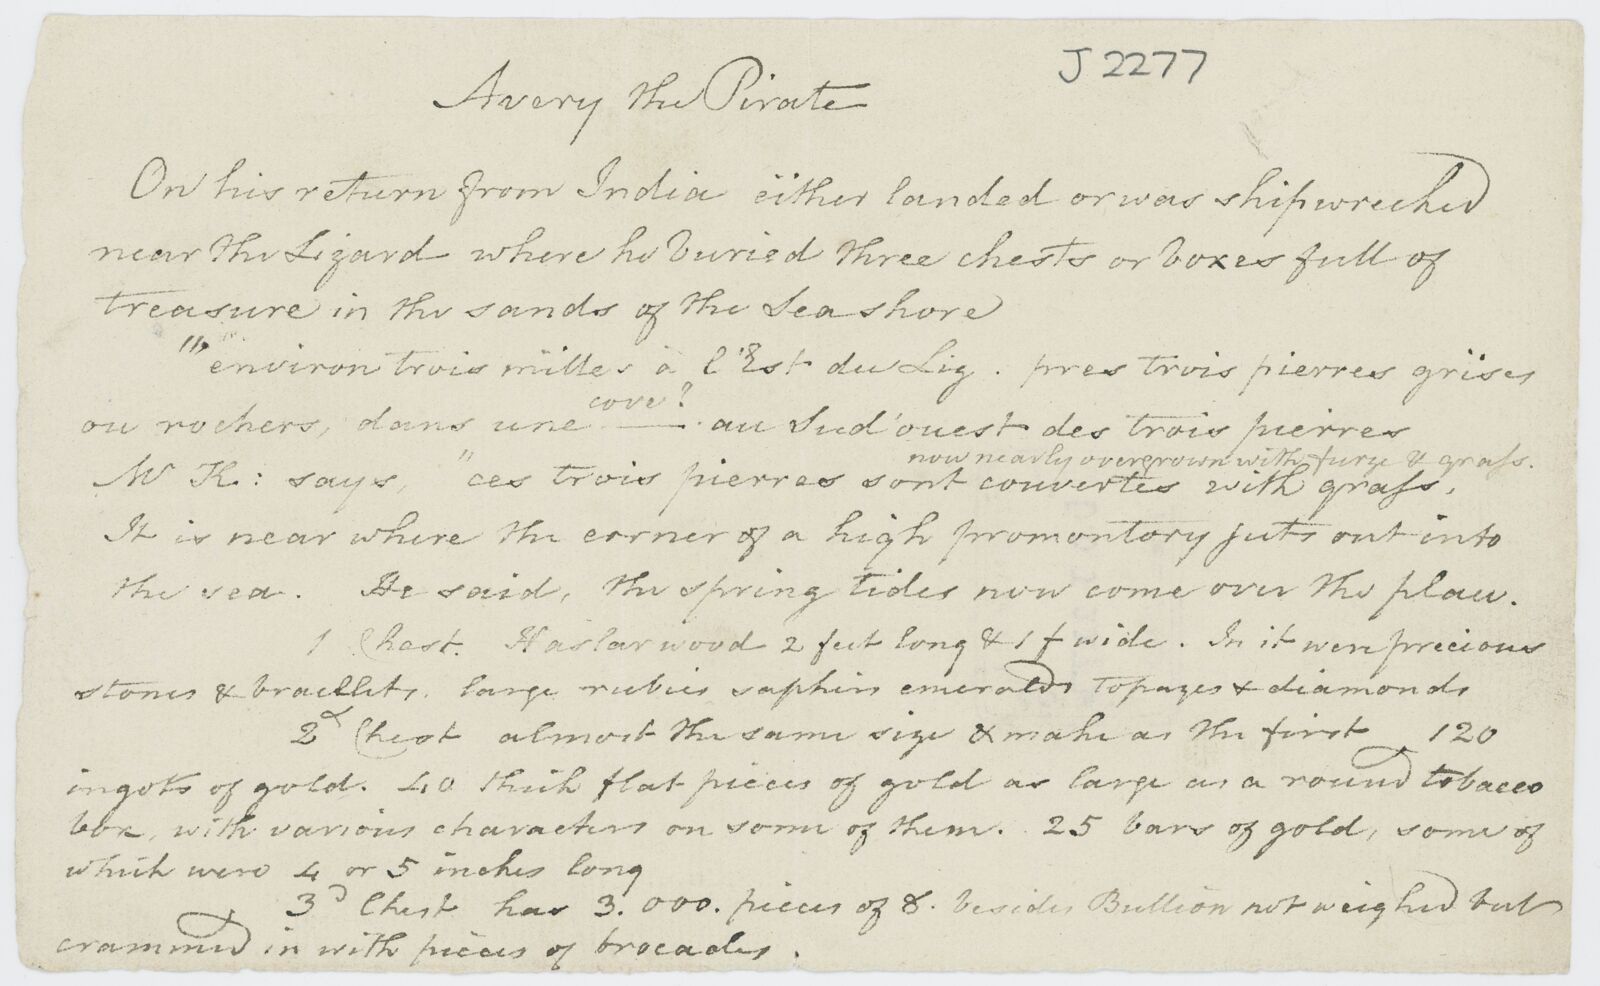 J 2277
Avery the Pirate
On his return from India either landed or was shipwrecked
near the Lizard where he buried three chests or boxes full of
treasure in the sands of the Sea shore
"environ trois milles à l'Est du Liz. pres trois pierres grises
cove?
ou rochers, dans une —— au Sud'ouest des trois pierres
now nearly overgrown with furze & grass.
Mr K: says, "ces trois pierres sont couvertes with grass.
It is near where the corner of a high promontory juts out into
the sea. He said, the spring tides now come over the place.
1 Chest. Haslar wood 2 feet long & 1 f wide. In it were precious
stones & bracllets. large rubies saphirs emeralds topazes & diamonds
2d Chest almost the same size & make as the first 120
ingots of gold. 40 thick flat pieces of gold as large as a round tobacco
box, with various characters on some of them. 25 bars of gold, some of
which were 4 or 5 inches long
3d Chest has 3.000. pieces of 8. besides Bullion not weighed but
crammed in with pieces of brocades.